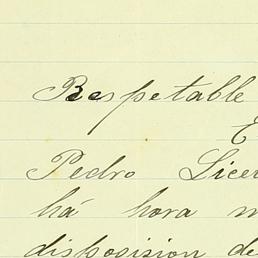 Respetable
E
Pedro Licer
há hora m
disposision de